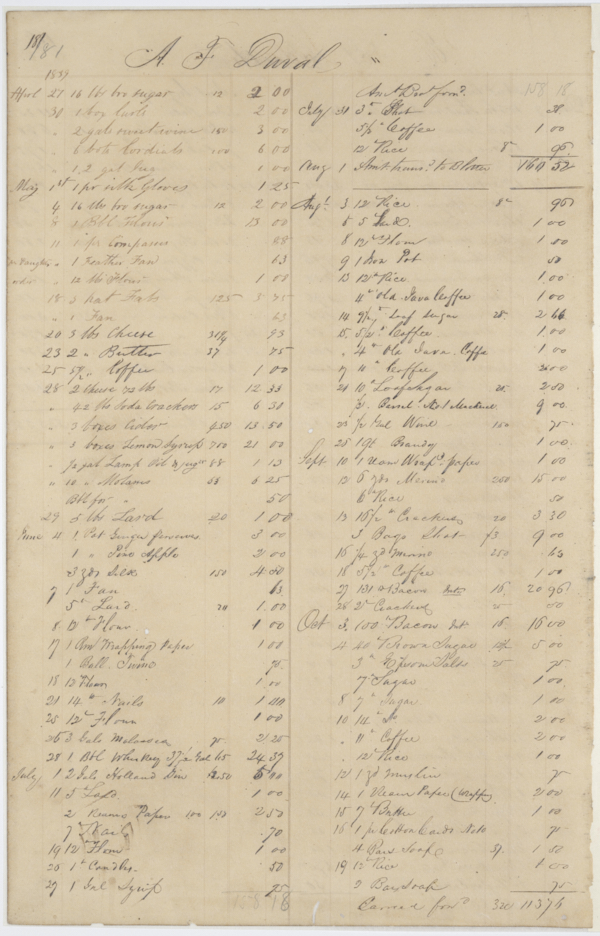 181
A F Duval
1859
April 27 16 lbs bro sugar 12 2 00
30 1 box 2 00
2 gals sweet wine 150 3 00
6 bots Cordials 100 6 00
1 2 gal Jug 1 00
May 1st 1 pr silk Gloves 1 25
4 16 lbs bro sugar 12 2 00
8 Bbl 13 00
11 1 pr Compasses 88
1 Feather Fan 13
12 lbs Flour 1 00
18 3 hat 125 3 75
1 Fan 63
20 3 lbs Cheese 31¼ 93
23 2 " Butter 37 75
25 Coffee 1 00
28 2 Cheese 72 lbs 17 12 33
" 42 lbs Soda Crackers 15 6 30
" 3 boxes 450 13 50
" 3 boxes Lemon Syrup 700 21 00
" gal Lamp Oil & jug 88 1 13
" 10 " Molasses 63 6 25
Bbl for " 50
29 5 lbs Lard 20 1 00
June 4 1 Pot Ginger Preserves 3 00
1 " Pine Apple 2 00
3 yds Silk 150 4 50
7 1 Fan 63
5 " Lard 20 1.00
8 12 " Flour 1 00
17 1 Rm Wrapping Paper 1 00
1 Ball Twine 75
18 12 Flour 1 00
21 14 " Nails 10 1 40
25 12 " Flour 1 00
26 3 Gals Molasses 75 2.25
28 1 Bbl Whiskey 37½ Gal 65 24 37
July 1 2 Gals Holland Gin 250 5 00
11 5 Lard 1 00
2 Reams Paper 2 50
7 70
19 12 " Flour 1 00
26 1 " Candles 50
29 1 Gal Syrup 75
158 18
Amt Brot forwd 158 18
July 31 3 " Shot 38
5½ " Coffee 1.00
12 " Rice 8 96
Aug 1 Amt trans to Blotter 160 52
Augt 3 12 " Rice 8 96
5 5 Lard 1.00
8 12 " Flour 1.00
9 1 Iron Pot 50
13 12 " Rice 1.00
4 " Old Java Coffee 1.00
14 Loaf Sugar 28 2 66
15 5½ " Coffee 1.00
" 4 " Old Java Coffe 1 00
9 11 " Coffee 2 00
21 10 " Loaf Sugar 25 2 50
½ Barrel No 1 Mackerel 9 00
23 ½ Gal Wine 150 75
25 1 Qt Brandy 1 00
Sept 10 1 Ream Wrapg paper 1 00
12 6 yds Merino 250 15 00
6 " Rice 50
13 16½ " Crackers 20 3 30
3 Bags Shot $3 9 00
16 ¼ yd Merino 250 .63
18 5½ " Coffee 1 00
27 131 " Bacon 16 20 96
28 2 " Crackers 25 50
Oct 3 100 " Bacon 16 16 00
4 40 " Brown Sugar 12½ 5 00
3 " Epsom Salts 25 75
7 " Sugar 1.00
8 7 " Sugar 1 00
10 14 " Do 2 00
11 " Coffee 2 00
12 " Rice 1 00
12 1 yd Muslin 75
14 1 Ream Paper (Wrappg 2 00
15 7 " Butter 1 00
16 1 pr Cotton Cards 75
4 Bars Soap 1 50
19 12 " Rice 1 00
2 Bar Soap 75
Carried forwd 320 113 76